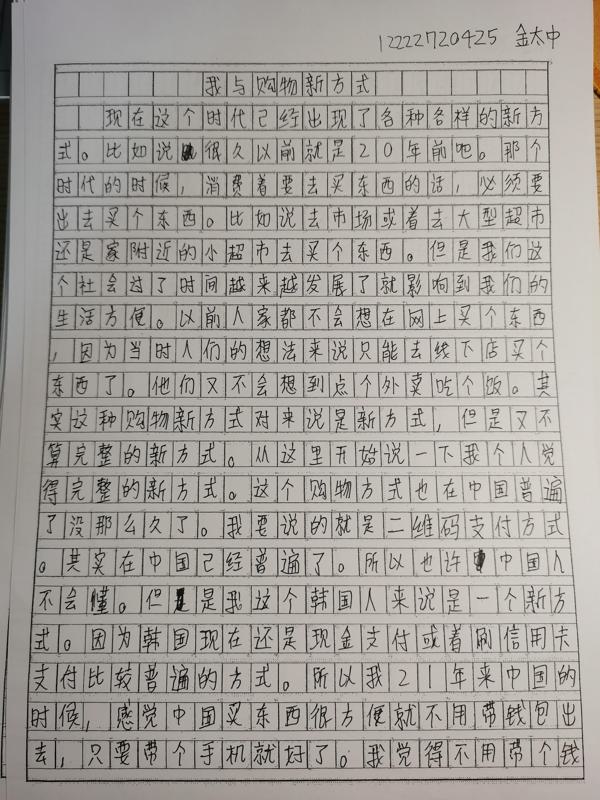 12222720425 金太中
我与购物新方式
现在这个时代已经出现了各种各样的新方
式。比如说很久以前就是20年前吧。那个
时代的时候，消费着要去买东西的话，必须要
出去买个东西。比如说去市场或着去大型超市
还是家附近的小超市去买个东西。但是我们这
个社会过了时间越来越发展了就影响到我们的
生活方便。以前人家都不会想在网上买个东西
，因为当时人们的想法来说只能去线下店买个
东西了。他们又不会想到点个外卖吃个饭。其
实这种购物新方式对来说是新方式，但是又不
算完整的新方式。从这里开始说一下我个人觉
得完整的新方式。这个购物方式也在中国普遍
了没那么久了。我要说的就是二维码支付方式
。其实在中国已经普遍了。所以也许中国人
不会懂。但是我这个韩国人来说是一个新方
式。因为韩国现在还是现金支付或着刷信用卡
支付比较普遍的方式。所以我21年来中国的
时候，感觉中国买东西很方便就不用带钱包出
去，只要带个手机就好了。我觉得不用带个钱